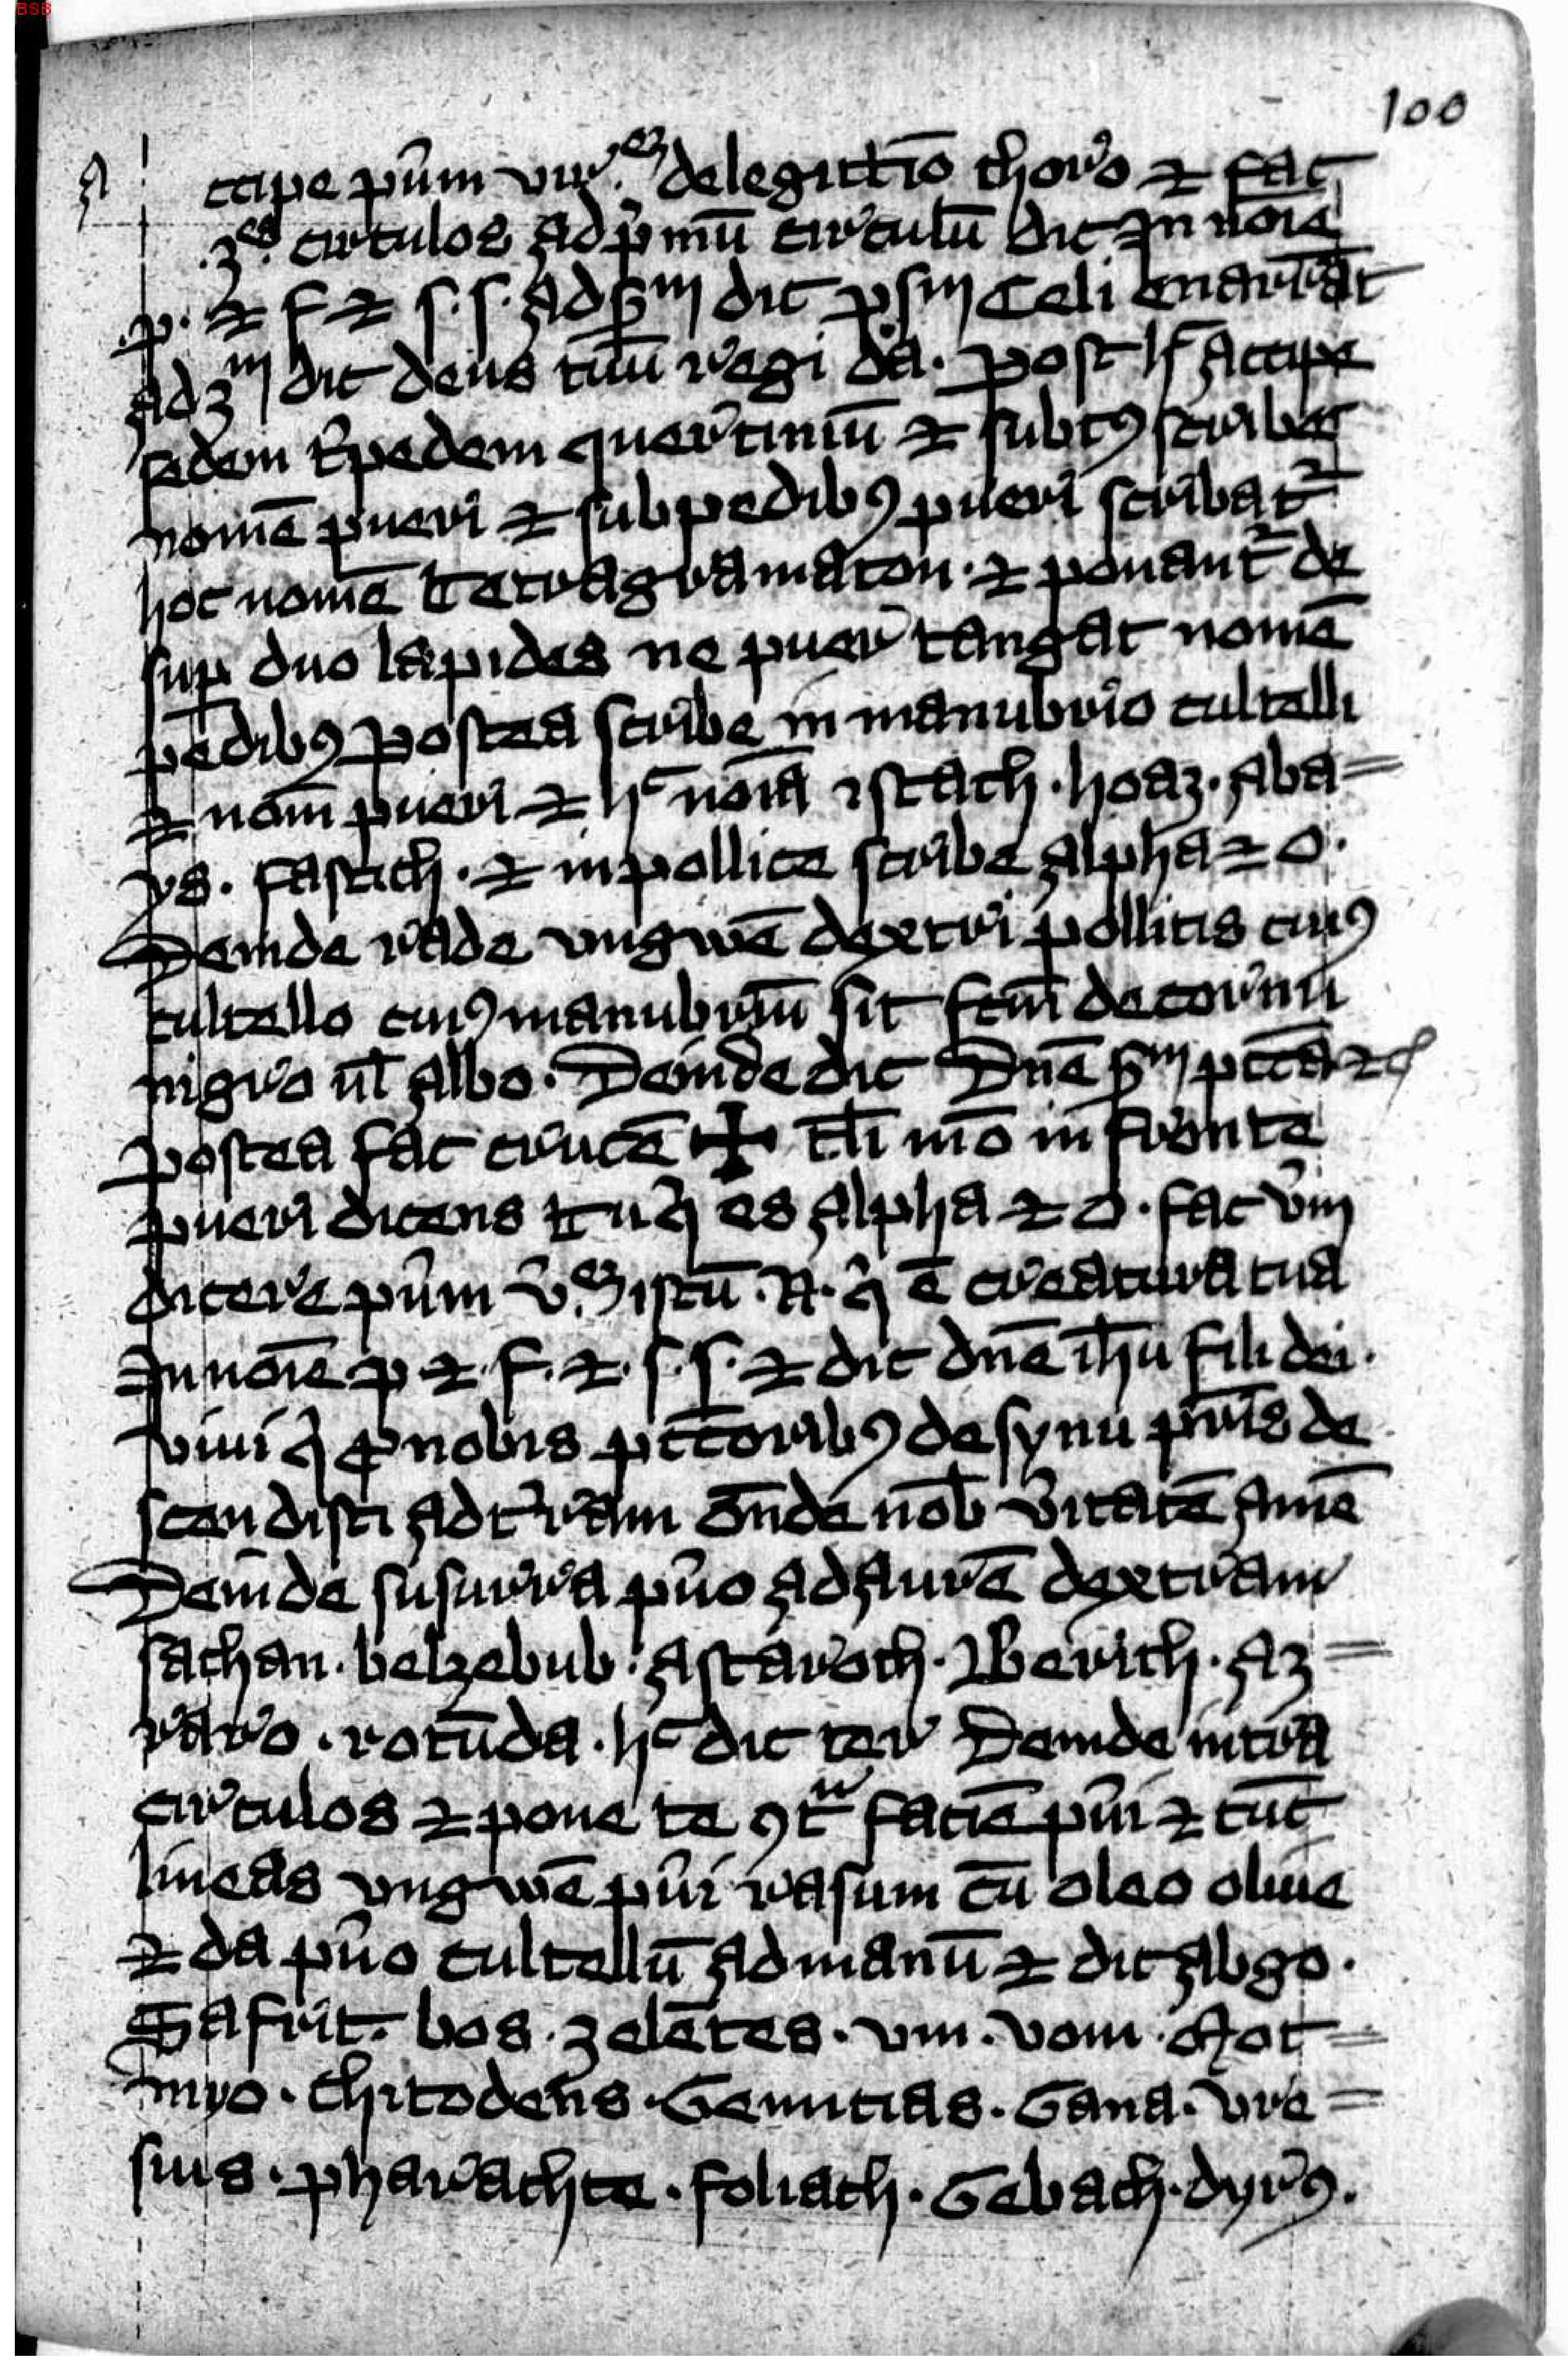 BSB
100
a
ccipe pu͛um vir.em de legittīo thoro ⁊ fac
.3es. circulos Ad p͛mū circulū dic In noīe
.p. ⁊ f ⁊ s. s. Ad sm dic psm Celi enarrāt
Ad 3m dic deus iudiciū tuū regi da. Post h͛ Accipe
sedem tripedem quercuniū ⁊ subtꝰ scribat
nomē pueri ⁊ sub pedibꝰ pueri scribat͛
hoc nomē tetragramaton. ⁊ ponant͛ de
sup duo lapides ne puer tangat nomē
pedibꝰ postea scribe in manubrio cultelli
⁊ nom̄ pueri ⁊ hc noīa istach. hoaz. Aba=
ys. fastach. ⁊ in pollice scribe Alpha ⁊ o.
Deinde rade ungwē dextri pollicis eiꝰ
cultello cuiꝰ manubriū sit fc̄m de cornu
nigro ul̄ Albo. Deinde dic Dn̄e sm pc̄cā ⁊c
Postea fac crucē ✠ tl̄i mō in fronte
pueri dicens tu q̄ es Alpha ⁊ o. fac v͛m
dicere pu͛um v͛.em istū .N. q̄ ē creatura tua
In noīe p ⁊ f. ⁊ s. s. ⁊ dic dn̄e ih̄u fili dei.
vivi q̄ ꝓ nobis pc̄c̄oribꝰ de synu pr̄is de
scendisti Ad t͛ram on̄de nob̄ v͛itatē Amē
Deinde susurra pu͛o Ad Aurē dextram
sathan. belzebub. Astaroth. Berith. Az=
raro. rotūda. hc dic ter Deinde intra
circulos ⁊ pone te ꝯt͛ faciē pu͛i ⁊ tūc
lineas ungwē pu͛i rasum cū oleo olive
⁊ da pu͛o cultellū Ad manū ⁊ dic Abgo.
Safrit. bos. zelētes. vm. vom.
myo. Chitodens. Genntias. Gana. vre=
sius. pharachte. foliath. Gebath. dyrꝰ.